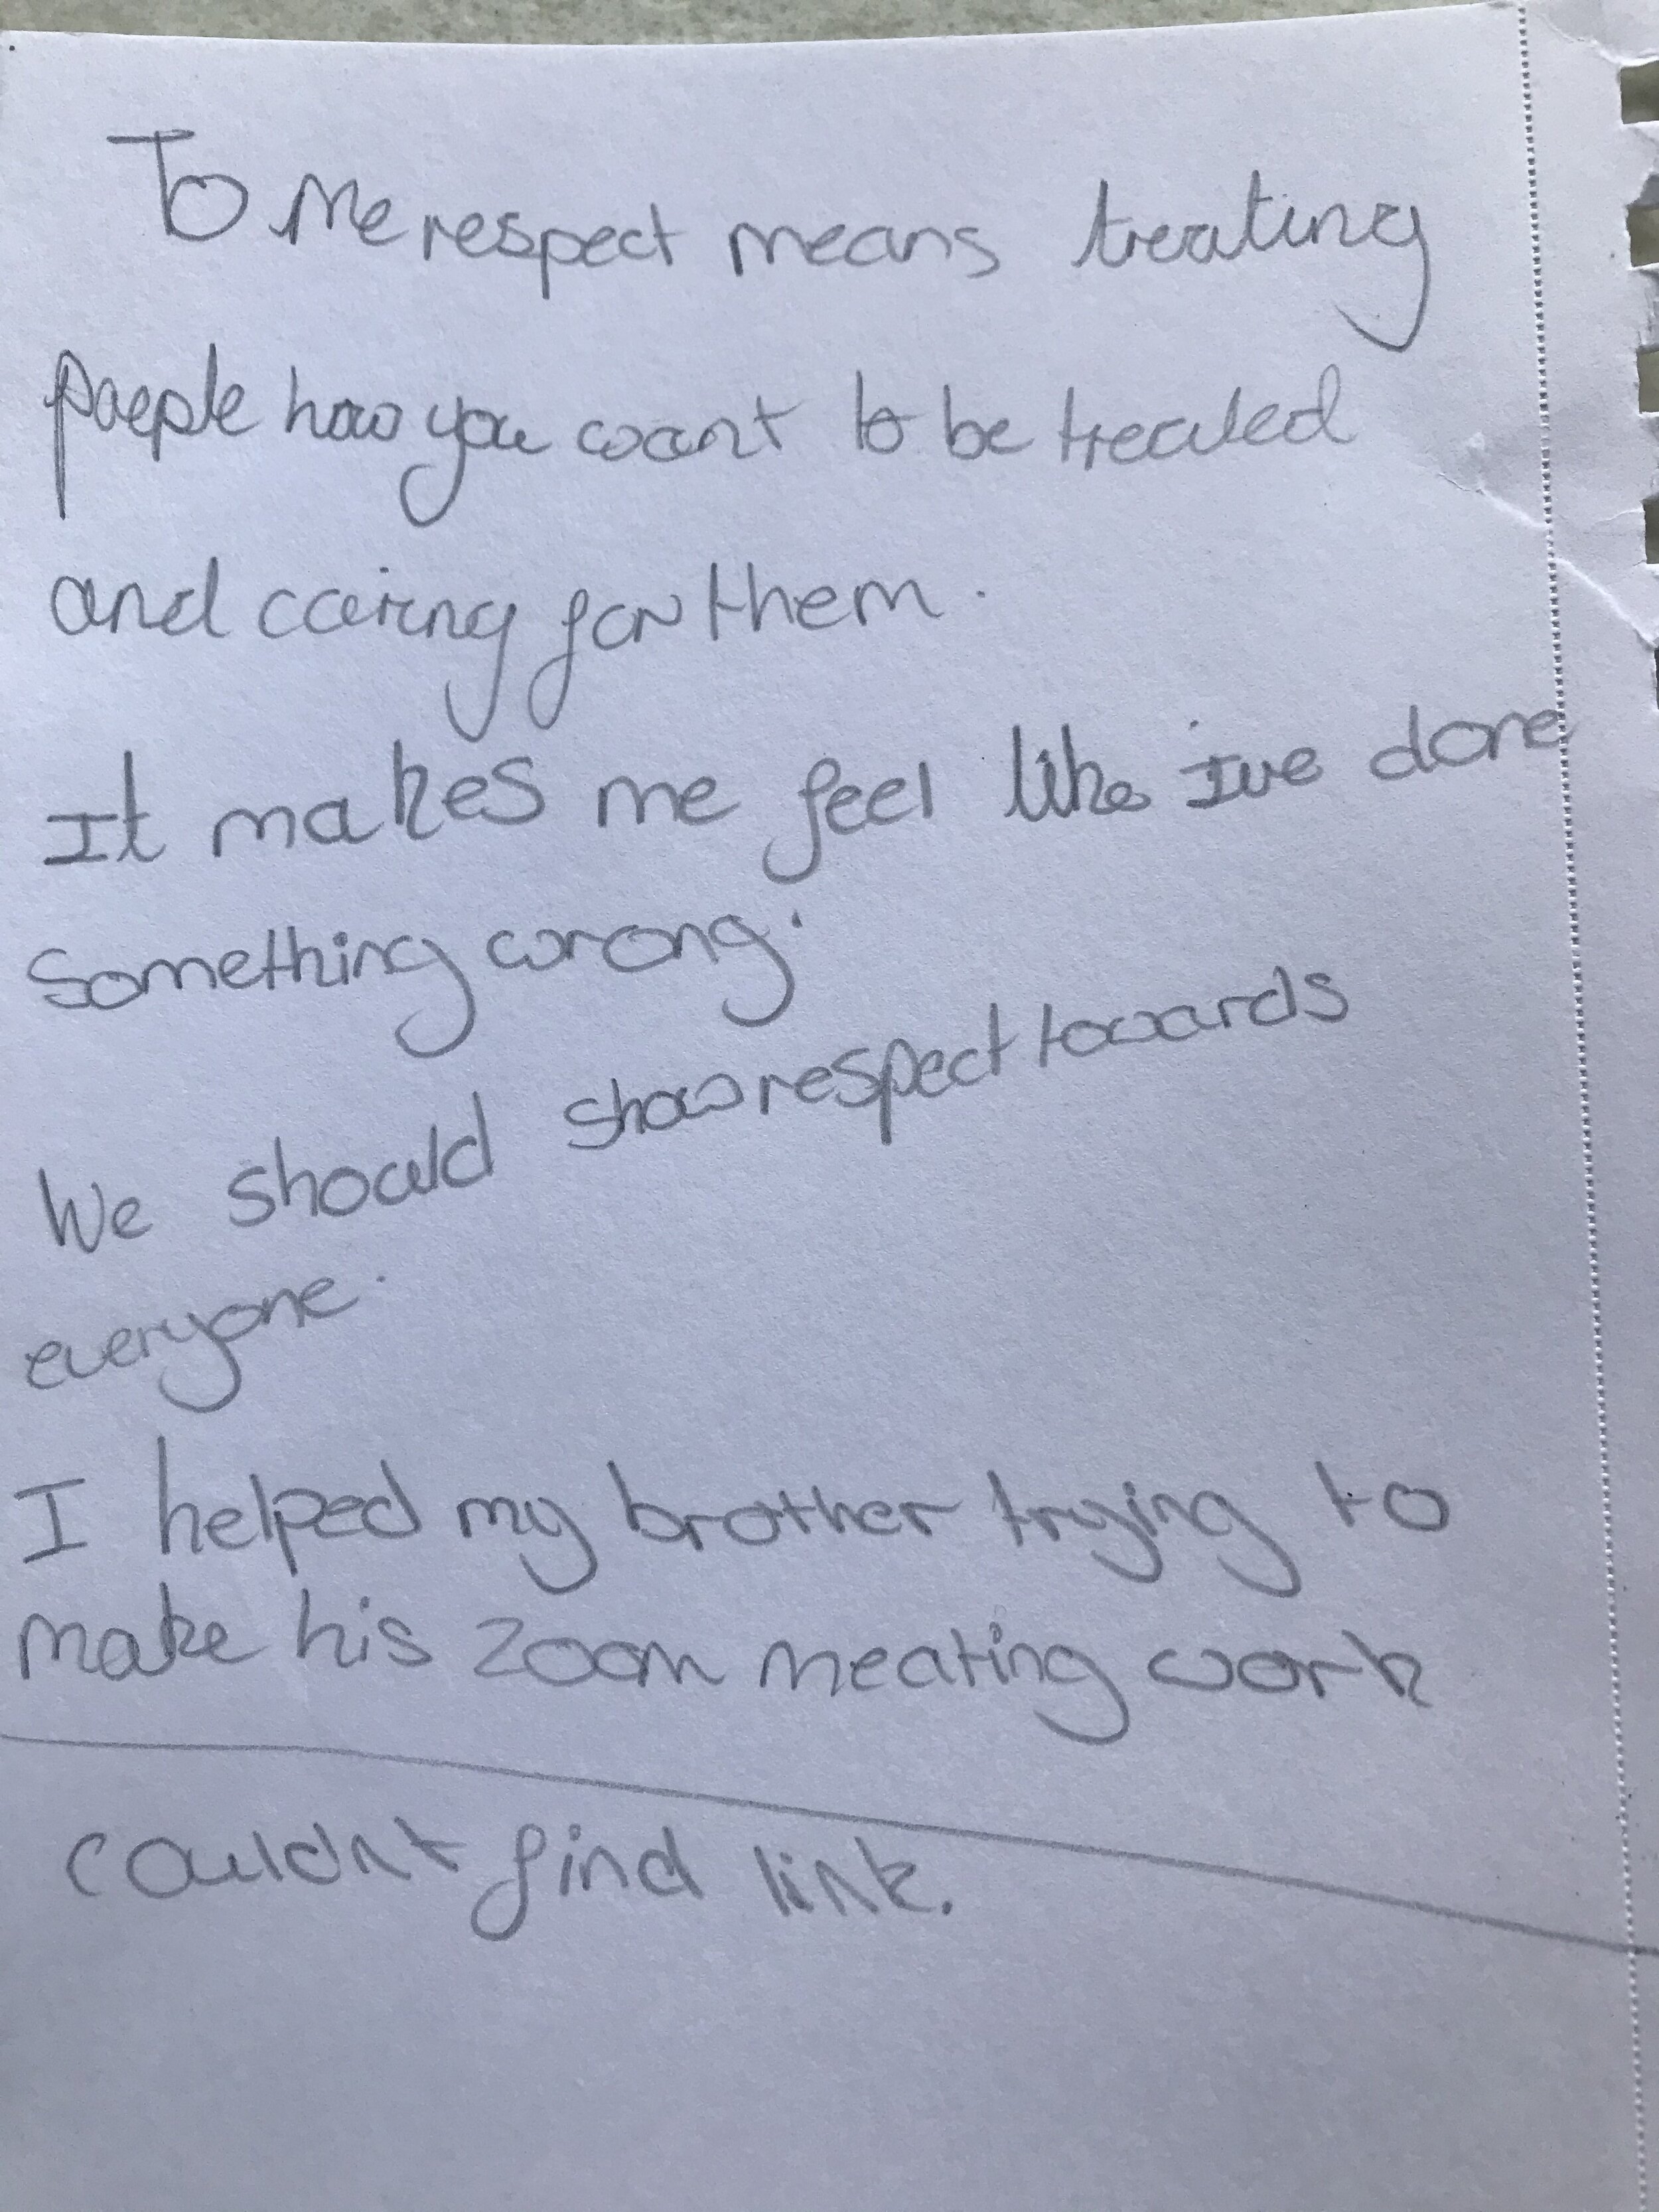 To Me respect means treating
poeple how you want to be treated
and caring for them.
It makes me feel like Ive done
Something wrong.
We should show respect towards
everyone.
I helped my brother trying to
make his zoom meating work
couldnt find link.